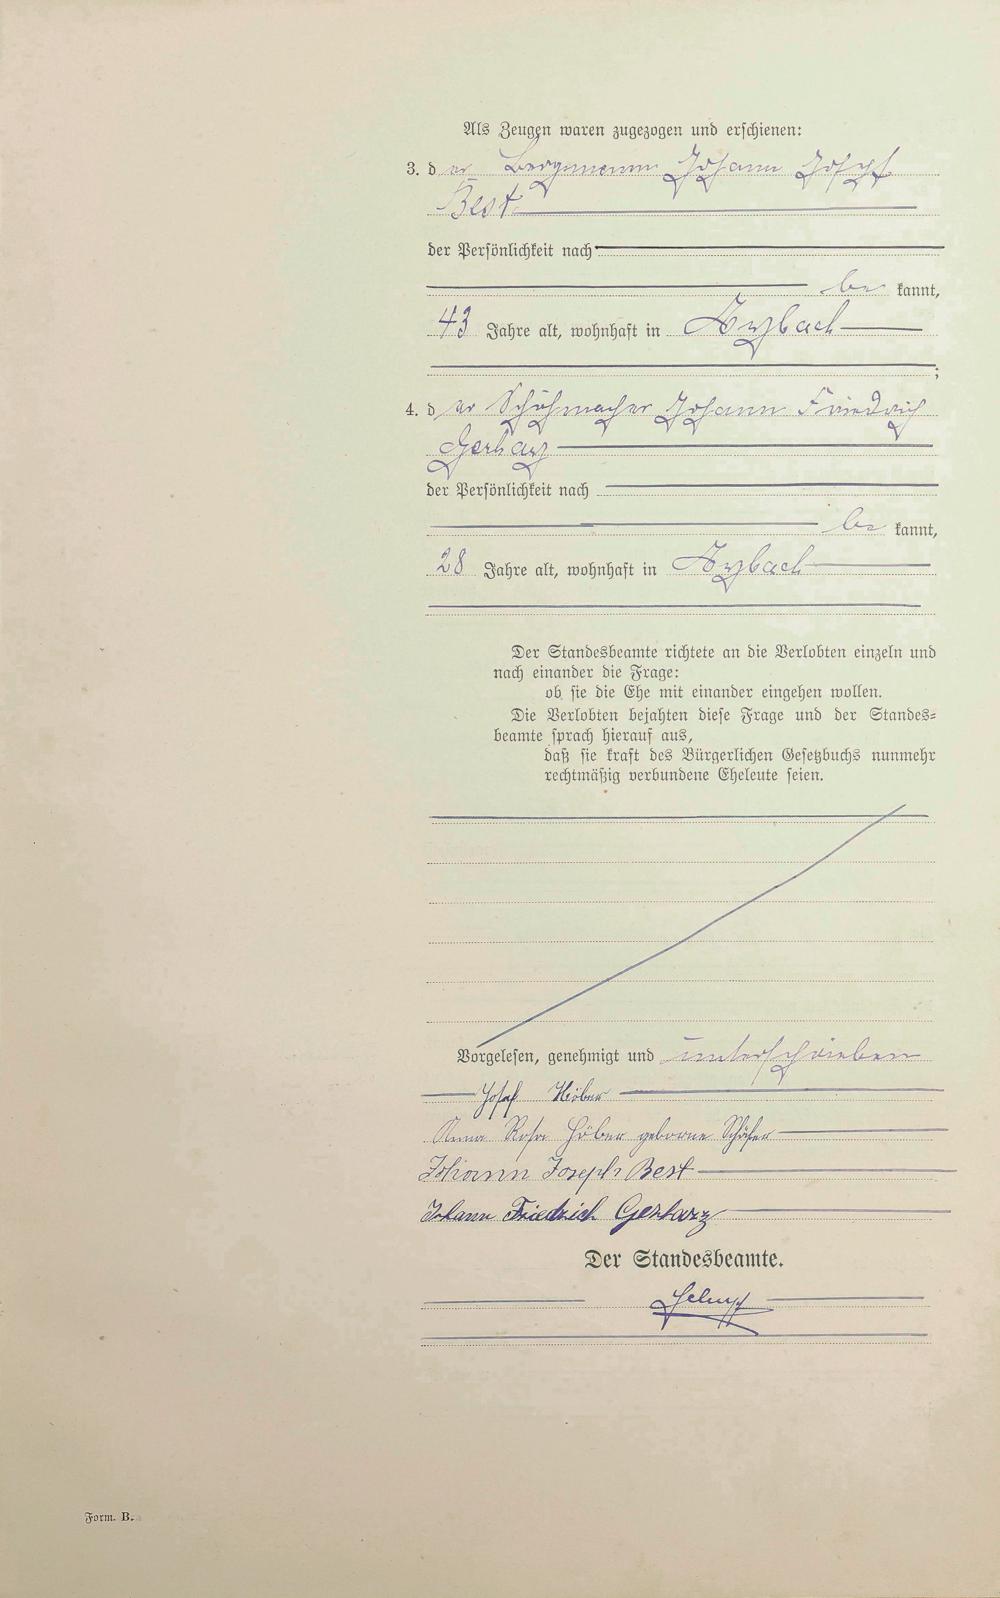 Als Zeugen waren zugezogen und erschienen:
3. der Bergmann Johann Josef
Best
der Persönlichkeit nach
be kannt,
43 Jahre alt, wohnhaft in Arzbach
;
4. der Schuhmacher Johann Friedrich
Gerharz
der Persönlichkeit nach
be kannt,
28 Jahre alt, wohnhaft in Arzbach
Der Standesbeamte richtete an die Verlobten einzeln und
nach einander die Frage:
ob sie die Ehe mit einander eingehen wollen.
Die Verlobten bejahten diese Frage und der Standes=
beamte sprach hierauf aus,
daß sie kraft des Bürgerlichen Gesetzbuchs nunmehr
rechtmäßig verbundene Eheleute seien.
Vorgelesen, genehmigt und unterschrieben
Josef Höber
Anna Rosa Höber geborne Schäfer
Johann Joseph Best
Johann Friedrich Gerharz
Der Standesbeamte.
Form. B.